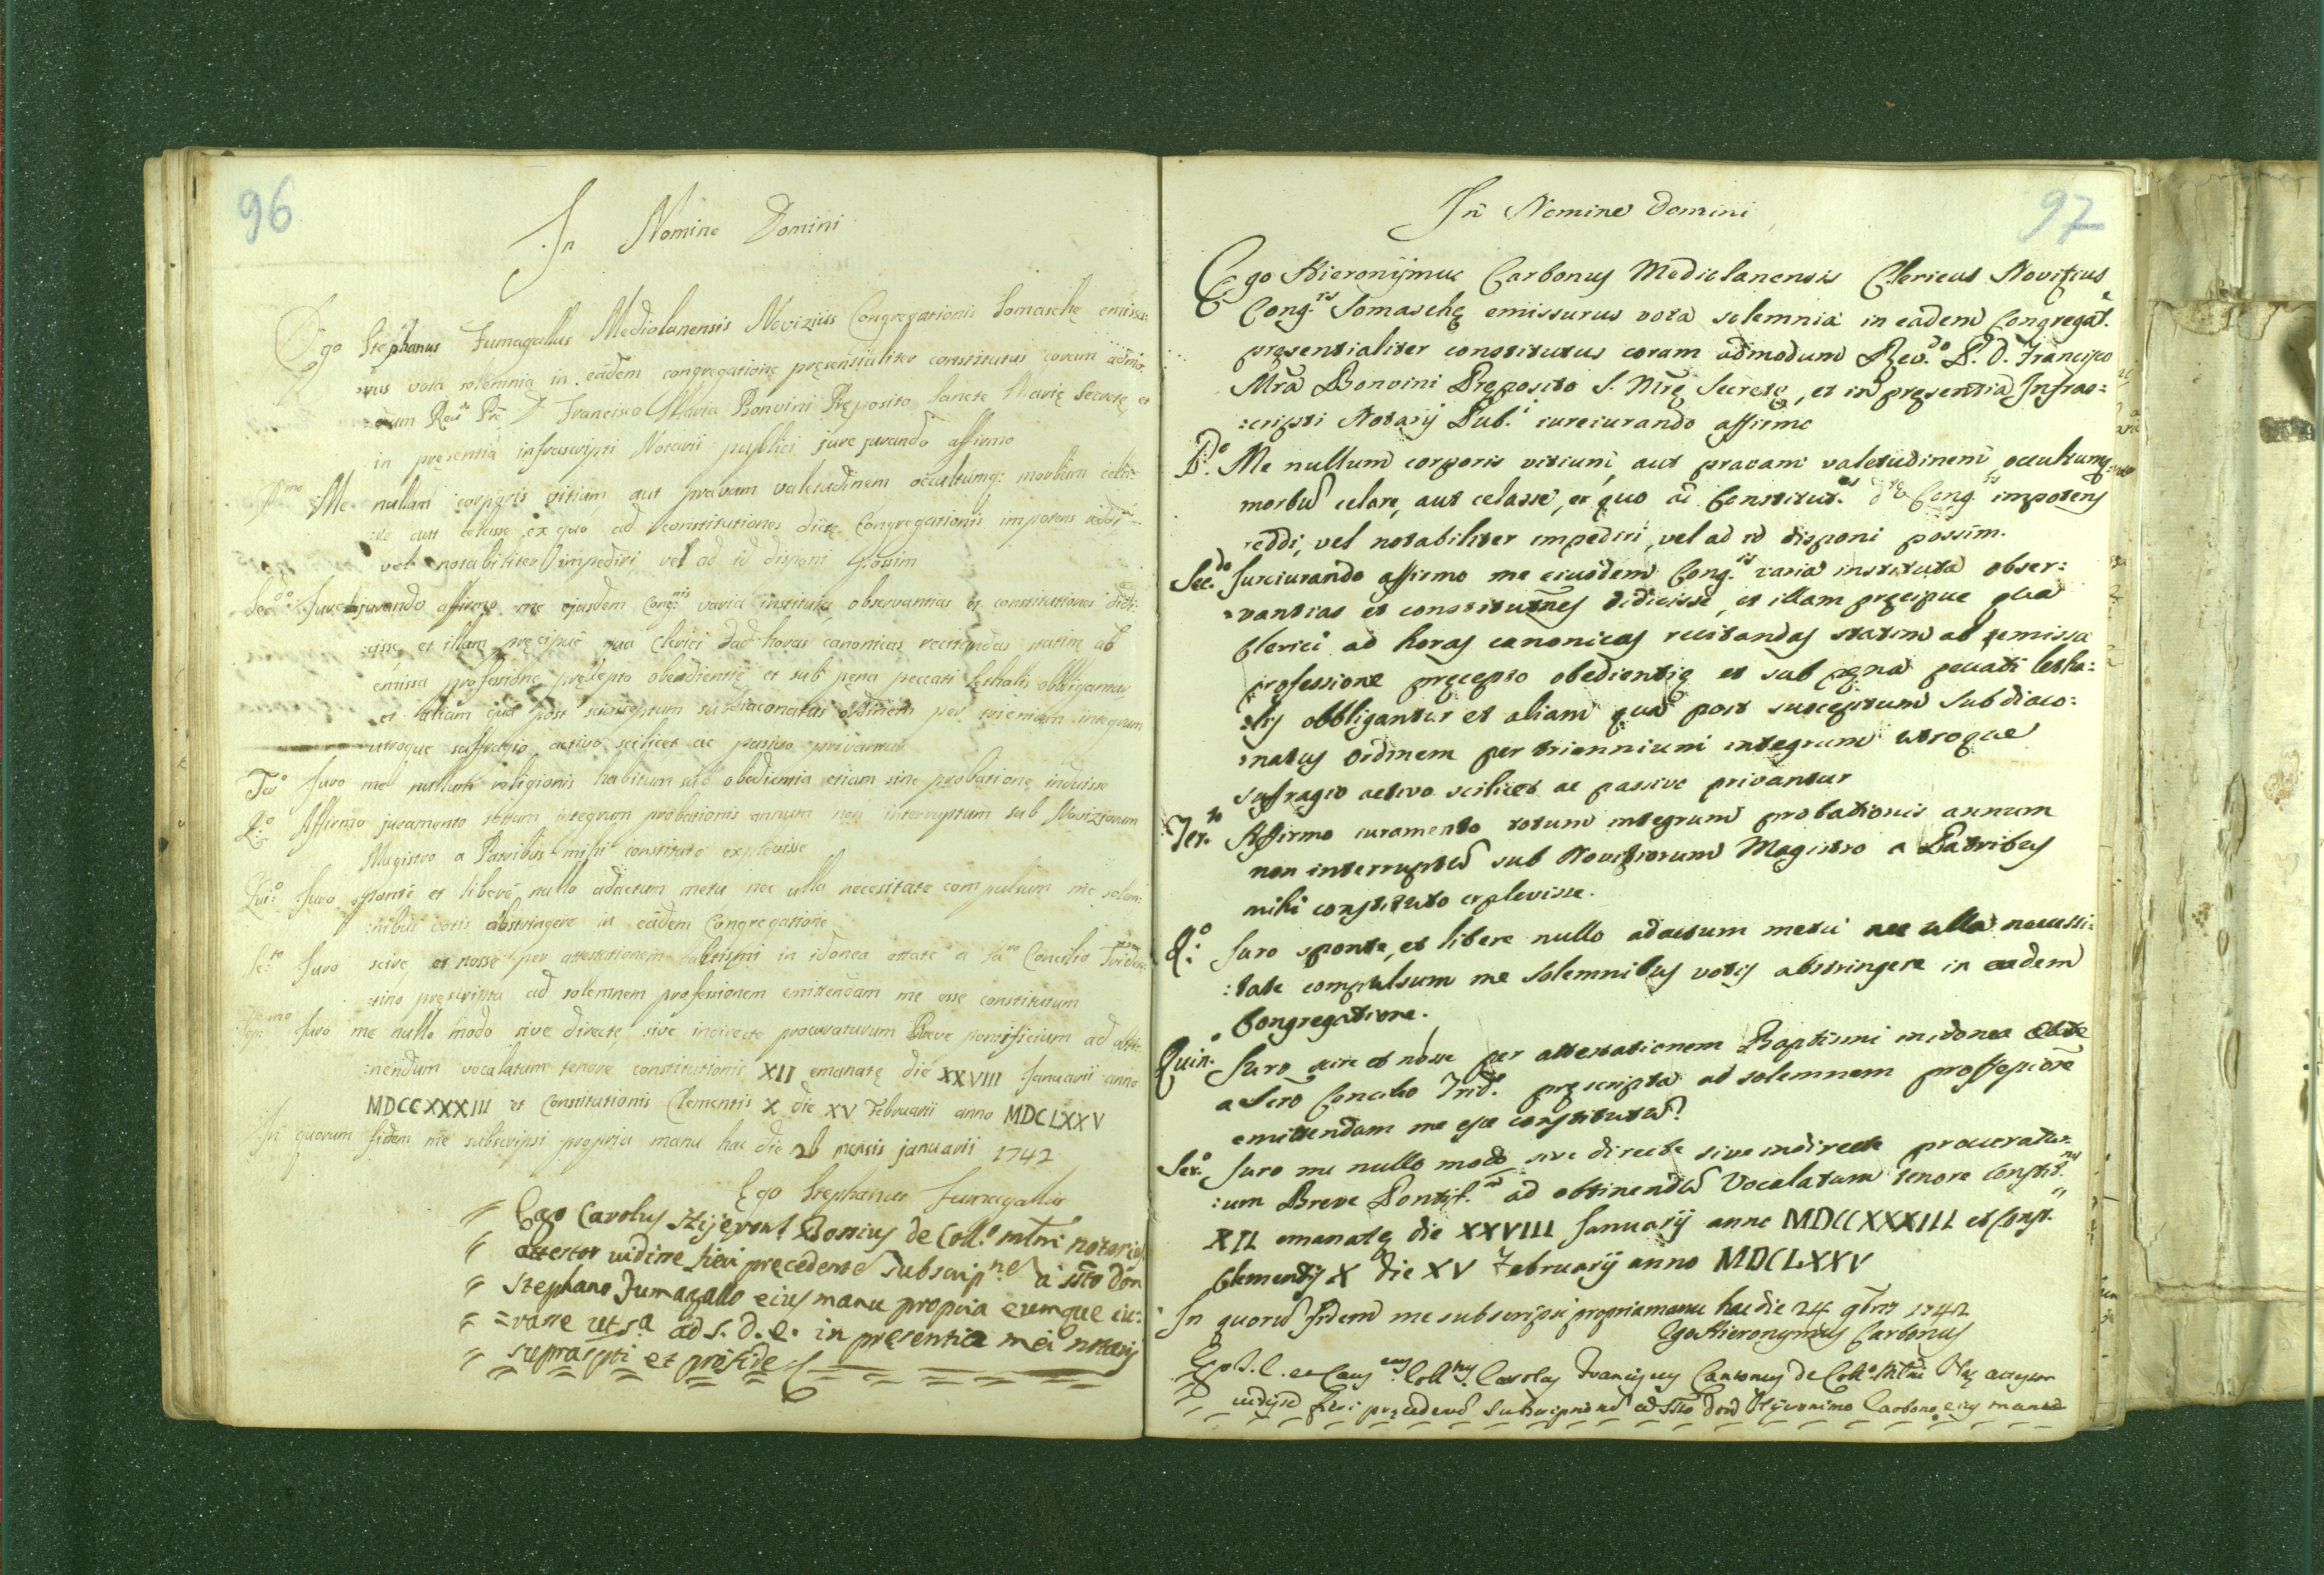 96
In Nomine Domini
Ego Stephanus Fumagallus Mediolanensis Noviziis Congregationis Somaschę emissu:
:rus vota solemnia in eadem congregatione pręsentialiter constitutus coram admo:
:dum Revdo Pre D. Francisco Maria Bonvini Pręposito Sancte Marię Secretę et
in pręsentia infrascripti Notarii publici jure jurando affirmo
Pmo Me nullam corporis vitium aut pravam valetudinem occultumq: morbum cela:
:re aut celasse ex quo ad constitutiones dictę Congregationis impotens reddi
vel notabiliter impediri vel ad id disponi possim
Secdo: Jurejurando affirmo me ejusdem Congnis varia instituta, observantias et constitutiones didi:
:cisse et illam pręcipuè qua Clerici ad horas canonicas recitandas statim ab
emissa professione pręcepto obedientię et sub pęna peccati lęthalis obbligantur
et aliam qua post susceptum subdiaconatus ordinem per trienium integrum
utroque suffragio activo scilicet ac pasivo privantur
Tero Juro me nullum religionis habitum sub obedientia etiam sine probatione induisse
Q:o Affirmo juramento totum integrum probationis annum non interruptum sub Novizionum
Magistro a Patribus mihi constituto explevisse
Qui:o Juro sponte et liberè nullo adactum metu nec ulla necesitate compulsum me solem:
:nibus votis abstringere in eadem Congregatione
Se:to Juro scire, et nosse per attestationem batismi in idonea ettate a Sacro Concilio Triden:
:tino pręscripta ad solemnem professionem emittendam me esse constitutum
Sep:mo Juro me nullo modo sive directe, sive indirecte procuraturum Breve pontificium ad obti:
:nendum vocalatum tenore constitutionis XII emanatę die XXVIII Januarii anno
MDCCXXXIII et Constitutionis Clementis X die XV Februarii anno MDCLXXV
In quorum fidem me subscripsi propria manu hac die 26 mensis januarii 1742
Ego Stephanus Fumagallus
Ego Carolus Hijeron. Bossius de Coll.o mlni notarius
attestor vidisse fieri pręcedente subscripne a ssto don
Stephano Fumagallo eius manu propria eumque iu:
=rasse ut sa ad s. d. e. in pręsentia mei notarij
suprascpti et pro fide
97
In Nomine Domini
Ego Hieronijmus Carbonus Mediolanensis Clericus Novitius
Cong.is Somaschę emissurus vota solemnia in eadem Congregat.e
pręsentialiter constitutus coram admodum Rev.do P. D. Francisco
Mra Bonvini Pręposito S. Mrę Secretę, et in pręsentia Infras:
:cripti Notarij Pub.i iureiurando affirmo
P:o Me nullum corporis vitium, aut pravam valetudinem, occultumq:
morbū celare, aut celasse, ex quo ad Constitut.es dtę Cong.is impotens
reddi, vel notabiliter impediri, vel ad id disponi possim.
Sec.do Jureiurando affirmo me eiusdem Cong.is varia instituta obser:
:vantias et constitutnes didicisse, et illam pręcipue qua
Clerici ad horas canonicas recitandas statim ab emissa
professione pręcepto obedientię et sub pęna peccati letha:
:lis obbligantur et aliam qua post susceptum Subdiaco:
:natus ordinem per triennium integrum utroque
sufragio activo scilicet ac passivo privantur
Ter.to Affirmo iuramento totum integrum probationis annum
non interruptū sub Novitiorum Magistro a Patribus
mihi constituto explevisse.
Q:o Juro sponte, et libere nullo adactum metu nec ulla necessi:
:tate compulsum me solemnibus votis abstringere in eadem
Congregatione.
Quin.o Juro scire et nosse per attestationem Baptismi in idonea etate
a Scro Concilio Trid.o pręscripta ad solemnem professione
emittendam me esse constitutū.
Ses.o Juro me nullo modo sive directe sive indirecte procuratur:
:um Breve Pontif.m ad obtinendū Vocalatum tenore Constit.nis
XII emanatę die XXVIII Januarij anno MDCCXXXIII et Const.nis
Clementis X die XV Februarij anno MDCLXXV
In quorū fidem me subscripsi propria manu hac die 24 9bris 1742
Ego Hieronymus Carbonus
Carolus Franciscus Cantonus de Coll.o Mlni attestor
vidisse fieri pręcedend subscriptionem ad ssto dno Hijeronimo Carbono eius manu